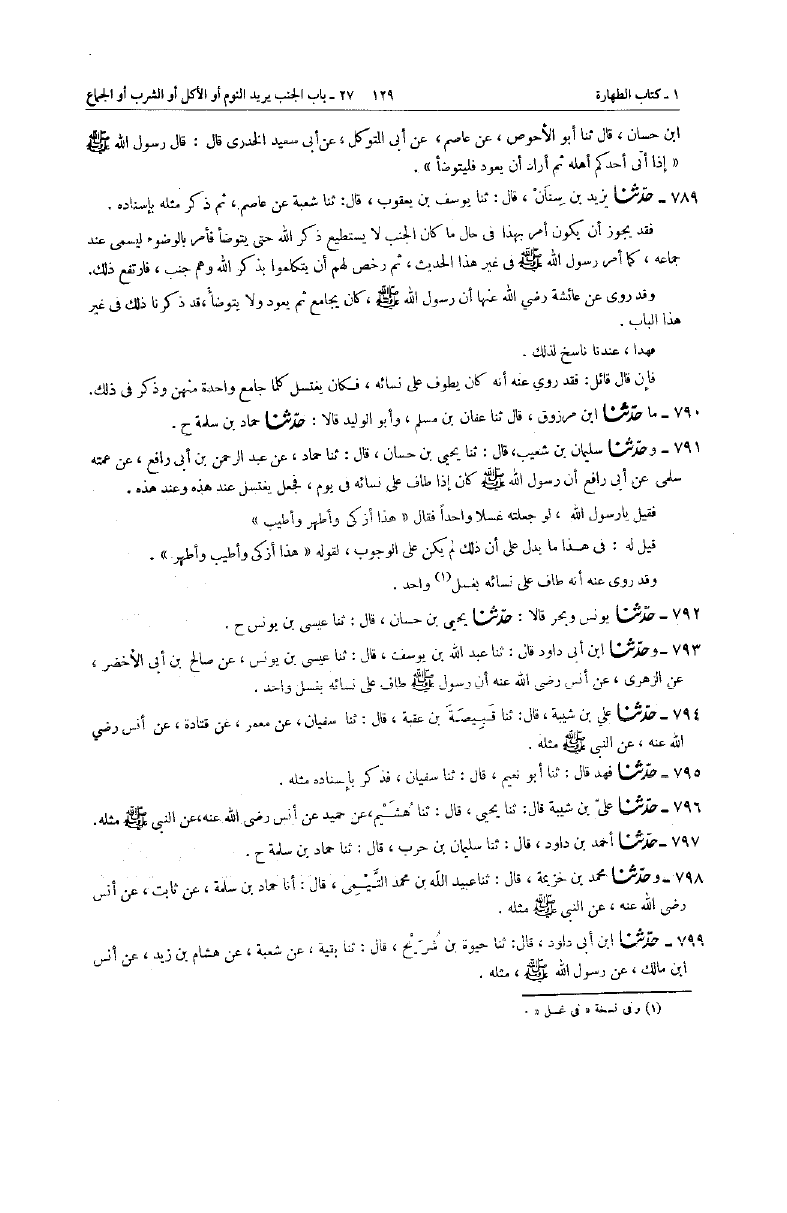 ١ ـ كتاب الطهارة ١٢٩ ٢٧ ـ باب الجنب يريد النوم أو الأكل أو الشرب أو الجماع
ابن حسان ، قال ثنا أبو الأحوص ، عن عاصم ، عن أبى المتوكل ، عن أبى سعيد الخدرى قال : قال رسول الله ﷺ
« إذا أتى أحدكم أهله ثم أراد أن يعود فليتوضأ » .
٧٨٩ ـ حدّثنا يزيد بن سِنَانَ ، قال : ثنا يوسف بن يعقوب ، قال: ثنا شعبة عن عاصم ، ثم ذكر مثله بإسناده .
فقد يجوز أن يكون أمر بهذا فى حال ما كان الجنب لا يستطيع ذكر الله حتى يتوضأ فأمر بالوضوء ليسمى عند
جماعه ، كما أمر رسول الله ﷺ فى غير هذا الحديث ، ثم رخص لهم أن يتكلموا بذكر الله وهم جنب ، فارتفع ذلك.
وقد روى عن عائشة رضي الله عنها أن رسول الله ﷺ ، كان يجامع ثم يعود ولا يتوضأ ،قد ذكرنا ذلك فى غير
هذا الباب .
فهذا ، عندنا ناسخ لذلك .
فإن قال قائل: فقد روي عنه أنه كان يطوف على نسائه ، فكان يغتسل كلما جامع واحدة منهن وذكر فى ذلك.
٧٩٠ ـ ما حدّثنا ابن مرزوق ، قال ثنا عفان بن مسلم ، وأبو الوليد قالا : حدّثنا حماد بن سلمة ح .
٧٩١ ـ وحدّثنا سليمان بن شعيب، قال : ثنا يحيى بن حسان ، قال : ثنا حماد ، عن عبد الرحمن بن أبى رافع ، عن عمته
سلمى عن أبى رافع أن رسول الله ﷺ كان إذا طاف على نسائه فى يوم ، فجعل يغتسل عند هذه وعند هذه .
فقيل يارسول الله ، لو جعلته غسلا واحداً فقال « هذا أزكى وأطهر وأطيب »
قيل له : فى هـذا ما يدل على أن ذلك لم يكن على الوجوب ، لقوله « هذا أزكى وأطيب وأطهر » .
وقد روى عنه أنه طاف على نسائه بغسل(١) واحد .
٧٩٢ ـ حدّثنا يونس وبحر قالا : حدّثنا يحيى بن حسان ، قال : ثنا عيسى بن يونس ح .
٧٩٣ ـ وحدّثنا ابن أبى داود قال : ثنا عبد الله بن يوسف ، قال : ثنا عيسى بن يونس ، عن صالح بن أبى الأخضر ،
عن الزهرى ، عن أنس رضى الله عنه أن رسول ﷺ طاف على نسائه بغسل واحد .
٧٩٤ ـ حدّثنا علي بن شيبة ، قال: ثنا قَبِيصَةَ بن عقبة ، قال : ثنا سفيان ، عن معمر ، عن قتادة ، عن أنس رضي
الله عنه ، عن النبي ﷺ مثله .
٧٩٥ ـ حدّثنا فهد قال : ثنا أبو نعيم ، قال : ثنا سفيان ، فذكر بإسناده مثله .
٧٩٦ ـ حدّثنا علىّ بن شيبة قال: ثنا يحيى ، قال : ثنا هُشَيْم،عن حميد عن أنس رضى الله عنه،عن النبي ﷺ مثله.
٧٩٧ ـ حدّثنا أحمد بن داود ، قال : ثنا سليمان بن حرب ، قال : ثنا حماد بن سلمة ح .
٧٩٨ ـ وحدّثنا محمد بن خزيمة ، قال : ثنا عبيد اللّه بن محمد التَّيْـمِى ، قال : أنا حماد بن سلمة ، عن ثابت ، عن أنس
رضى الله عنه ، عن النبي ﷺ مثله .
٧٩٩ ـ حدّثنا ابن أبى داود ، قال: ثنا حيوة بن شُرَيْح ، قال : ثنا بقية ، عن شعبة ، عن هشام بن زيد ، عن أنس
ابن مالك ، عن رسول الله ﷺ ، مثله .
(١) وفى نسخة « فى غسل » .